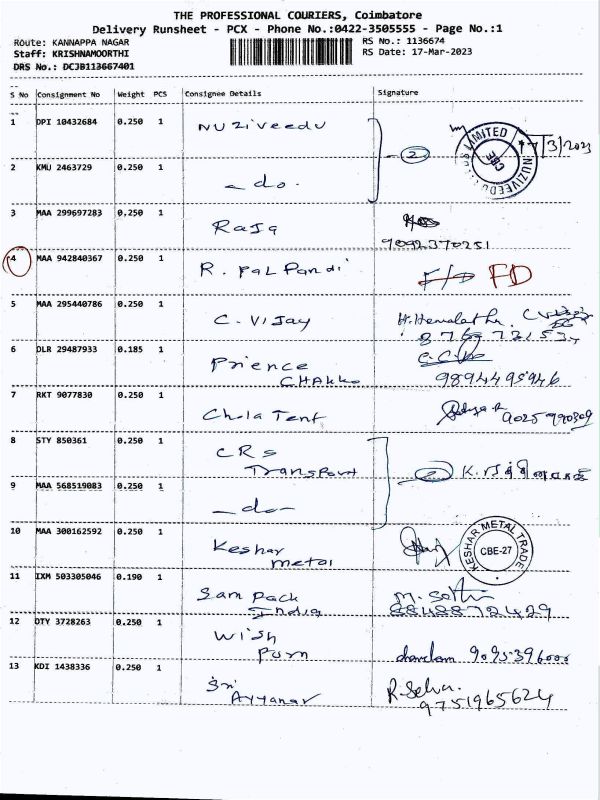 THE PROFESSIONAL COURIERS, Coimbatore
Delivery Runsheet - PCX - Phone No.:0422-3505555 - Page No.:1
Route: KANNAPPA NAGAR RS No.: 1136674
Staff: KRISHNAMOORTHI RS Date: 17-Mar-2023
DRS No.: DCJB113667401
S No Consignment No Weight PCS Consignee Details Signature
1 DPI 10432684 0.250 1 NUZiveedu 2 17/3/2023
NUZIVEEDU LIMITED CBE
2 KMU 2463729 0.250 1 - do -
3 MAA 299697283 0.250 1 Raja
9092370251
4 MAA 942840367 0.250 1 R. Pal Pandi FD
5 MAA 295440786 0.250 1 C. Vijay H. Hemalatha
6 DLR 29487933 0.185 1 Prience
CHAkko 9894495946
7 RKT 9077830 0.250 1 Chola Tent
8 STY 850361 0.250 1 CRS
Transport 2
9 MAA 568519083 0.250 1 - do -
10 MAA 300162592 0.250 1 Keshar
metal
KESHAR METAL TRADE CBE-27
11 IXM 503305046 0.190 1 Sam pack
India
12 OTY 3728263 0.250 1 Wish
9095396000
13 KDI 1438336 0.250 1 Sri
Ayyanar R. Selva
9751965624